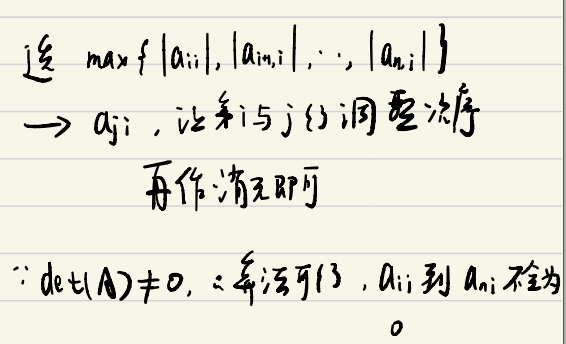 选 max{|aii|, |ai+1,i|, ⋯, |an,i|}
→ aji , 让第i与j行调整次序
再作消元即可
∵ det(A)≠0, ∴算法可行, aii到ani不全为
0